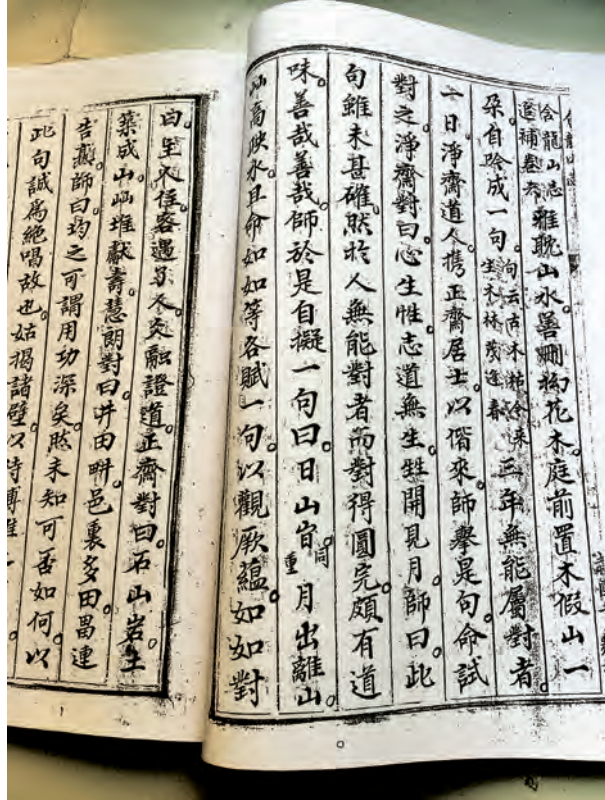 含龍山志
選補卷六
雅耽山水善刪栽花木庭前置木假山一
朵自唫成一句
句云古木枯舍來
生禾林茂逢春
三年無能屬對者
一日淨齋道人携正齋居士以偕來師擧是句命試
對之淨齋對曰心生性志道無生甡開見月師曰此
句雖未甚確然於人無能對者而對得圓完頗有道
味善哉善哉師於是自擬一句曰日山旹
同
重
月出離山
屾高映水且命如如等各賦一句以觀厥蘊如如對
曰
人住客遇
人交融證道正齋對曰石山岩土
築成山屾堆獻壽慧朗對曰井田畊邑裏多田畕連
吉
師曰均之可謂用功深矣然未知可否如何以
此句誠爲絕唱故也姑揭諸壁以